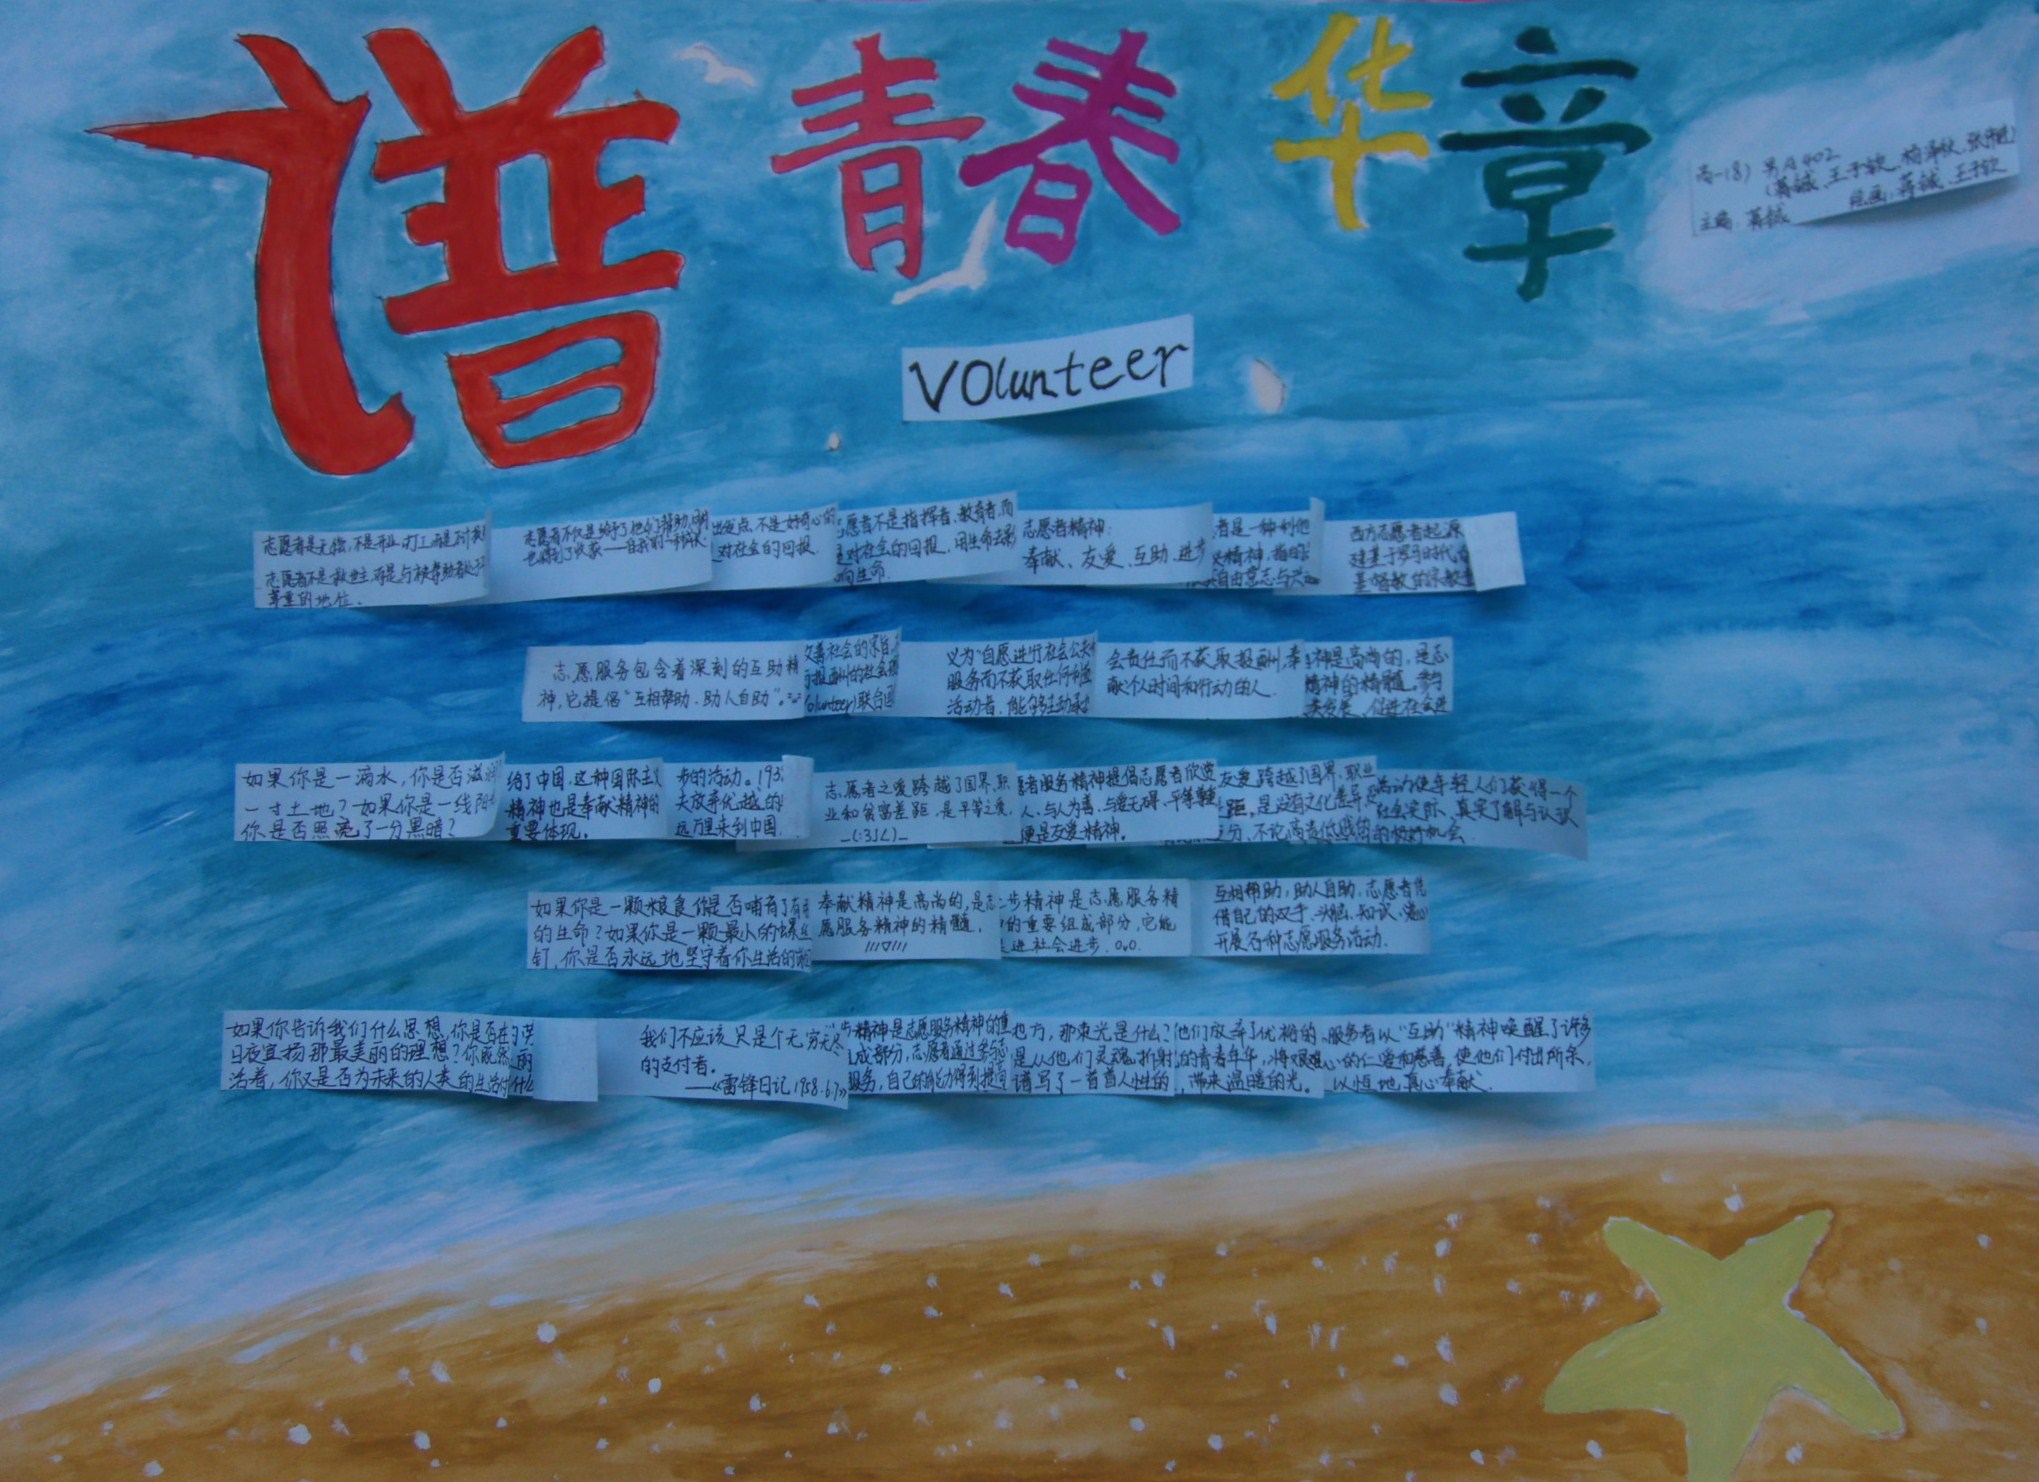 谱青春华章
Volunteer
高一(8) 男A402
王子钦
主编:
志愿者是无偿,不是
志愿者不是救世主,而是与被帮助者处于
尊重的地位。
志愿者不仅是给予了他们帮助,
也得到了收获——自我的一种
出发点,不是好奇心的
对社会的回报。
志愿者不是指挥者、教育者,而
是对社会的回报,用生命去影
响生命。
志愿者精神:
奉献、友爱、互助、进步
者是一种利他
精神,指的
自由意志与兴
西方志愿者起源
建基于罗马时代
基督教的宗教
志愿服务包含着深刻的互助精
神,它提倡“互相帮助、助人自助”。
改善社会的宗旨,
与报酬的社会
Volunteer)联合国
义为“自愿进行社会公共
服务而不获取任何利益
活动者、能够主动承
会责任而不获取报酬,奉
献个人时间和行动的人.
神是高尚的,是志
精神的精髓。参与
类发展、促进社会进
如果你是一滴水,你是否滋润
一寸土地?如果你是一线阳
你是否照亮了一分黑暗?
给了中国,这种国际主
精神也是奉献精神的
重要体现。
步的活动。193
夫放弃优越的
远万里来到中国
志愿者之爱跨越了国界、职
业和贫富差距,是平等之爱,
_(:3」∠)_
愿者服务精神提倡志愿者欣赏
人、与人为善、与爱无碍、平等尊重
便是友爱精神。
友爱跨越了国界、职业
距,是没有文化差异
之分,不论高贵低贱
活动使年轻人们获得一个
社会实际、真实了解与认识
的极好机会
如果你是一颗粮食,你是否哺育了有
的生命?如果你是一颗最小的螺丝
钉,你是否永远地坚守着你生活的
奉献精神是高尚的,是志
愿服务精神的精髓,
步精神是志愿服务精
的重要组成部分,它能
进社会进步. 0v0.
互相帮助,助人自助,志愿者凭
借自己的双手、头脑、知识、爱心
开展各种志愿服务活动.
如果你告诉我们什么思想,你是否在
日夜宣扬那最美丽的理想?你既然
活着,你又是否为未来的人类的生活付
我们不应该只是个无穷无尽
的支付者。
——《雷锋日记1958.6.7》
步精神是志愿服务精神的重
成部分,志愿者通过参与志
服务,自己的能力得到提高
地方,那束光是什么?
是从他们灵魂折射
谱写了一首首人性的
他们放弃了优裕的
的青春年华,将
,带来温暖的光。
服务者以“互助”精神唤醒了许多
心的仁爱和慈善,使他们付出所余,
以恒地真心奉献.